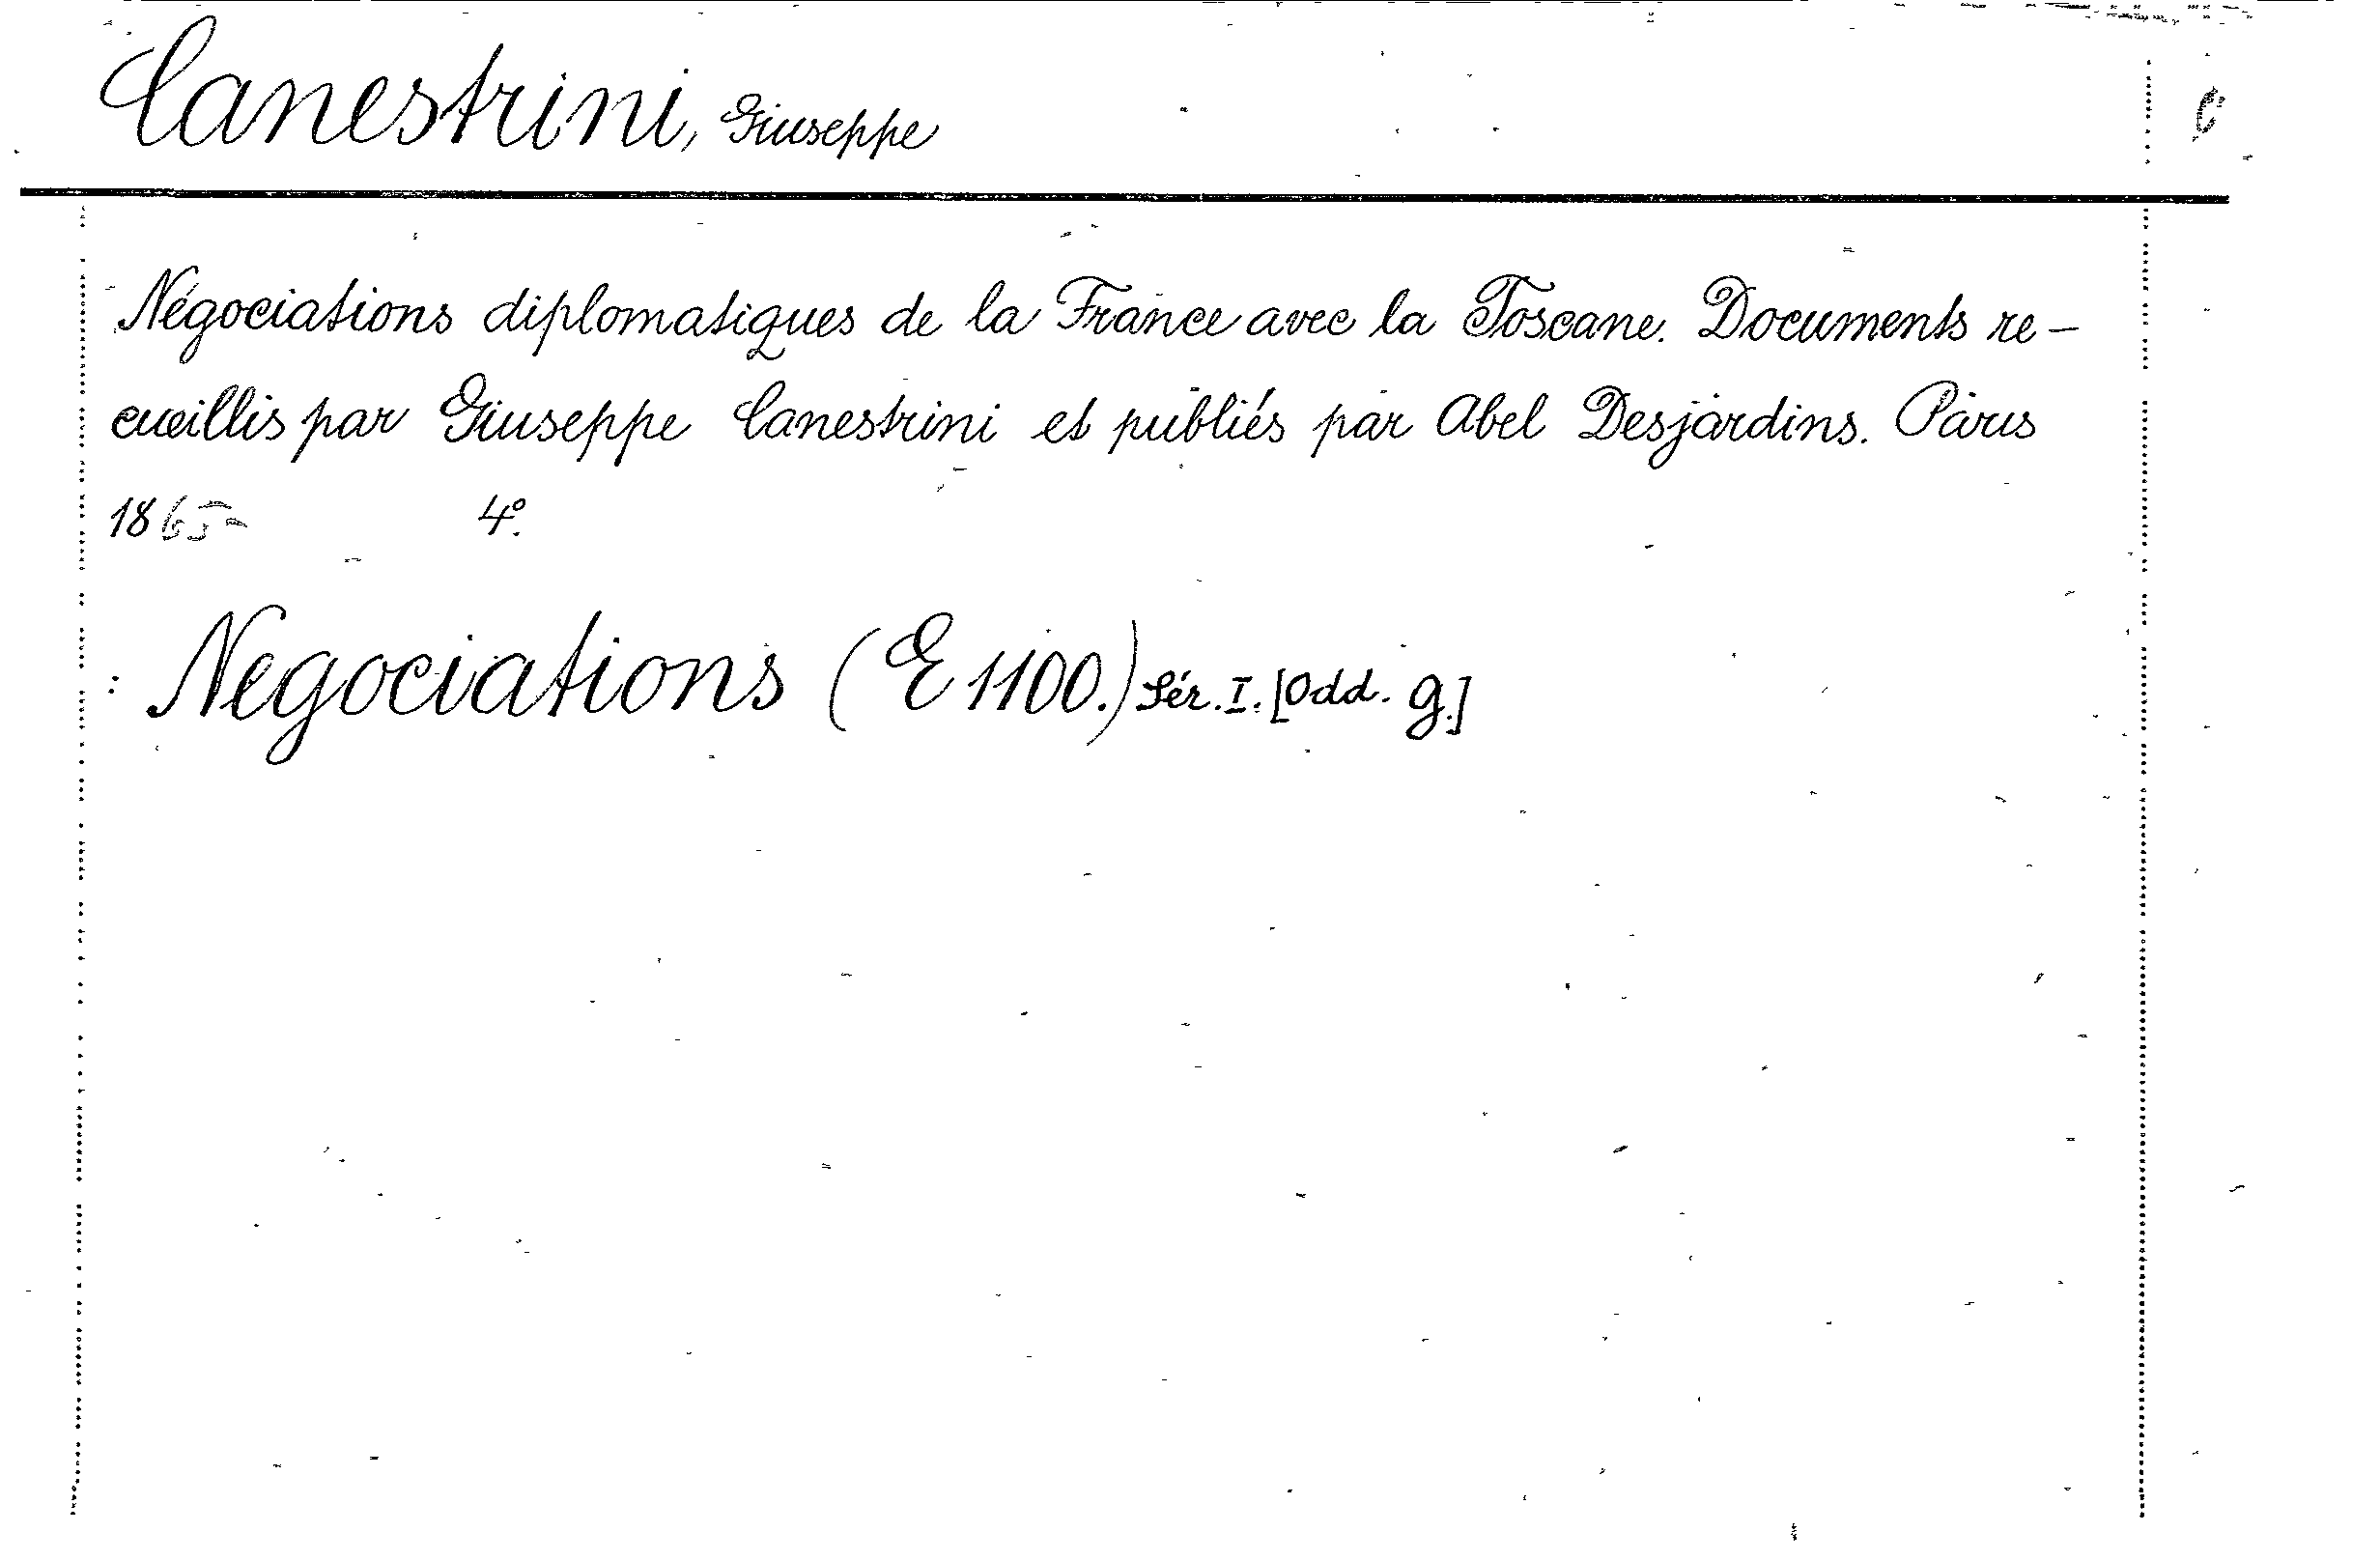 Canestrini, Giuseppe
C
Négociations diplomatiques de la France avec la Toscane. Documents re-
cueillis par Giuseppe Canestrini et publiés par Abel Desjardins. Paris
1865- 4°.
: Negociations (E 1100.) Sér. I. [Odd. g.]